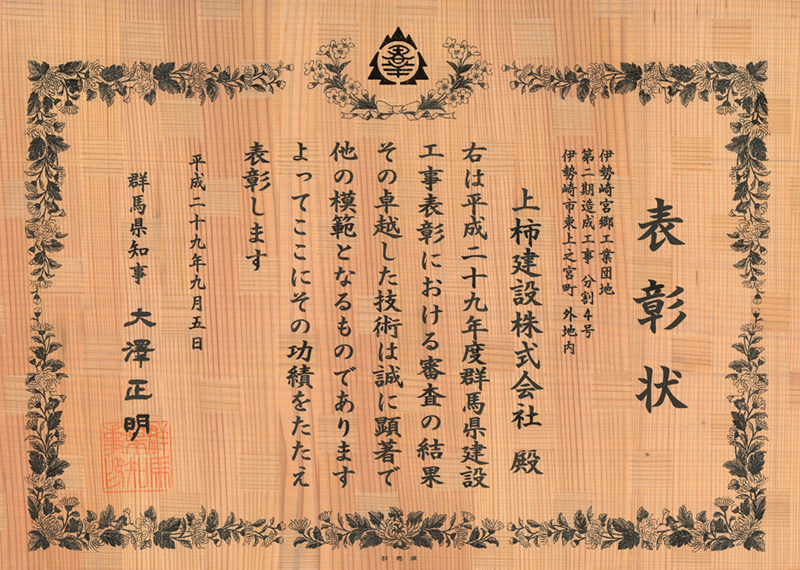 表彰状
伊勢崎宮郷工業団地
第二期造成工事 分割4号
伊勢崎市東上之宮町 外地内
上柿建設株式会社 殿
右は平成二十九年度群馬県建設
工事表彰における審査の結果
その卓越した技術は誠に顕著で
他の模範となるものであります
よってここにその功績をたたえ
表彰します
平成二十九年九月五日
群馬県知事 大澤正明
群馬県